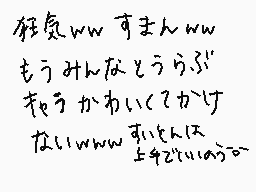 狂気ww すまんww
もうみんなとうらぶ
キャラかわいくてかけ
ないwww すいそんは
上手でいいのう…